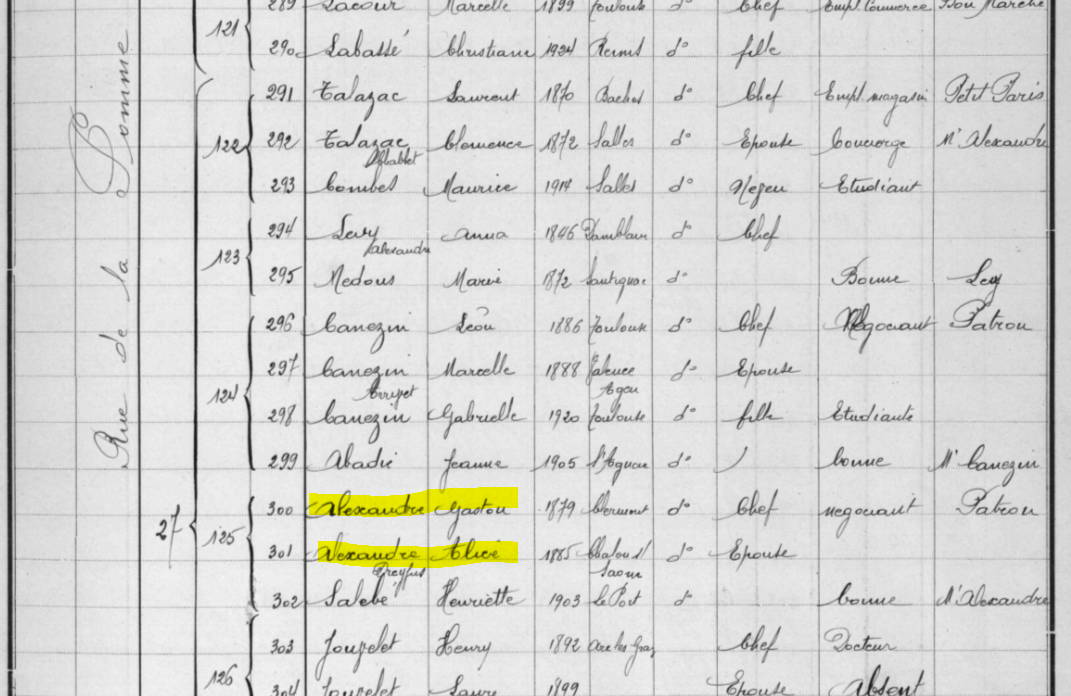 289 Lacour Marcelle 1899 Toulouse d° Chef Empl. Commerce Bon Marché
121
290 Labassé Christiane 1924 Reims d° fille
291 Talazac Laurent 1870 d° Chef Empl. magasin Petit Paris
122 292 Talazac Clemence 1872 Salles d° Epouse Concierge Mr Alexandre
293 Combes Maurice 1914 Salles d° Neveu Etudiant
294 Levy Anna 1846 d° Chef
Alexandre
123
295 Medous Marie 1872 d° Bonne Levy
296 Canezin Léon 1886 Toulouse d° Chef Négociant Patron
297 Canezin Marcelle 1888 Valence d° Epouse
Agen
124 298 Canezin Gabrielle 1920 Toulouse d° fille Etudiante
299 Abadie Jeanne 1905 d° bonne Mr Canezin
300 Alexandre Gaston 1879 Clermont d° Chef negociant Patron
27 125 301 Alexandre Alice 1885 Chalons s/ d° Epouse
Dreyfus Saone
302 Salebé Henriette 1903 le Port d° bonne Mr Alexandre
303 Jougelet Henry 1892 Chef Docteur
126
304 Jougelet 1899 Epouse Absent
Rue de la Pomme